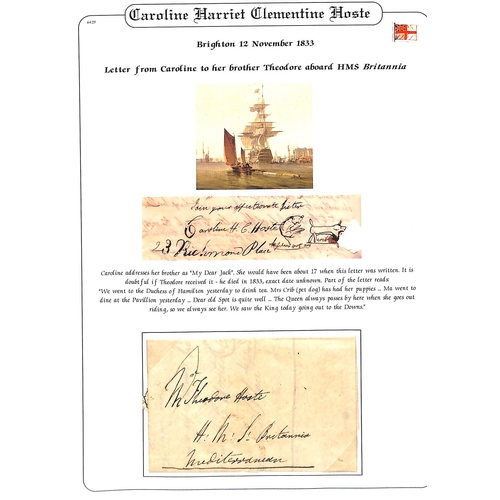 6439
Caroline Harriet Clementine Hoste
Brighton 12 November 1833
Letter from Caroline to her brother Theodore aboard HMS Britannia
your affectionate sister
Caroline H. C. Hoste
23 Richmond Place
Caroline addresses her brother as "My Dear Jack". She would have been about 17 when this letter was written. It is
doubtful if Theodore received it - he died in 1833, exact date unknown. Part of the letter reads:
"We went to the Duchess of Hamilton yesterday to drink tea. Mrs Crib (pet dog) has had her puppies ... Ma went to
dine at the Pavillion yesterday ... Dear old Spot is quite well ... The Queen always passes by here when she goes out
riding, so we always see her. We saw the King today going out to the Downs."
Mr Theodore Hoste
H. M. S. Britannia
Mediterranean